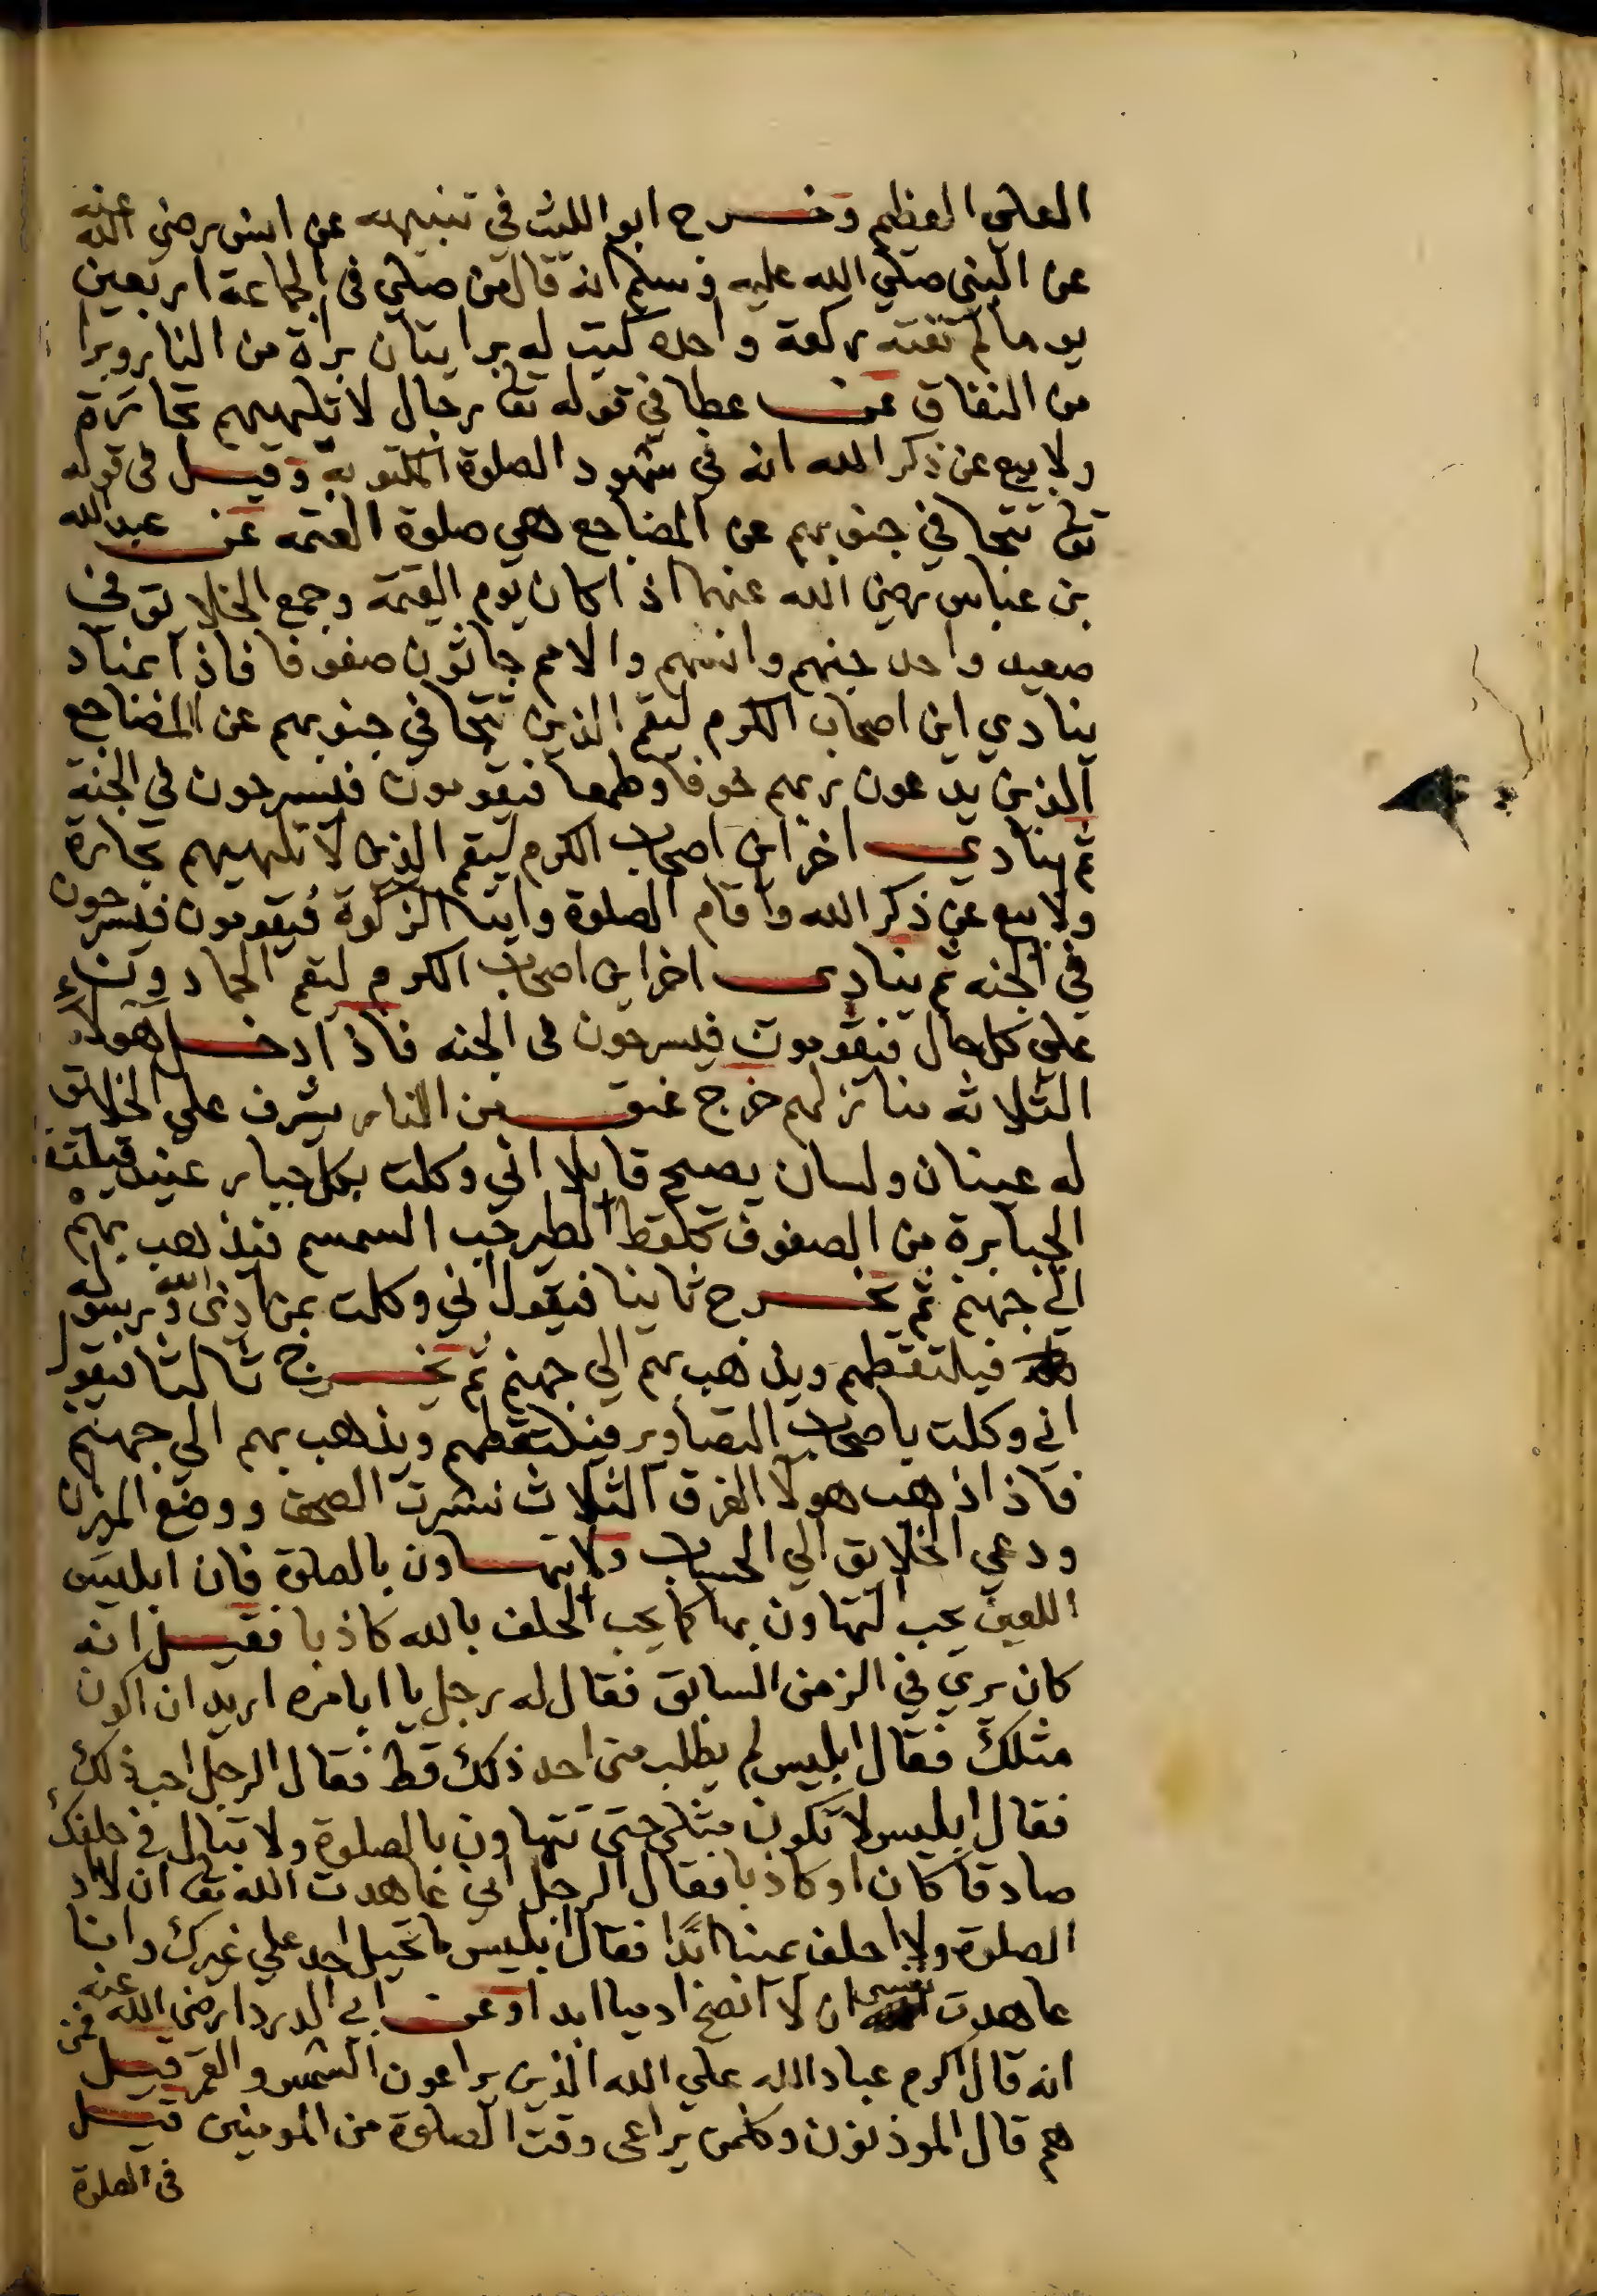 العلي العظيم وخرج ابو الليث في تنبيهه عن انس رضى الله عنه
عن النبي صلي الله عليه وسلم انه قال من صلي في الجماعة اربعين
يوما لم تفته ركعة واحده كتب له برايتان براة من النار وبرا
من النفاق عن عطا في قوله تعا رجال لا تلهيهم تجارة
ولا بيع عن ذكر الله انه في شهود الصلوة المكتوبة وقيل في قوله
تعا تتجافي جنوبهم عن المضاجع هي صلوة العتمه عن عبد الله
بن عباس رضي الله عنهما اذا كان يوم القيمة وجمع الخلايق في
صعيد واحد جنهم وانسهم والامم جاثون صفوفا فاذا بمناد
ينادي اين اصحاب الكرم ليقم الذين تتجافي جنوبهم عن المضاجع
الذين يدعون ربهم خوفا وطمعا فيقومون فيسرحون في الجنة
ثم ينادي اخر اين اصحاب الكرم ليقم الذين لا تلهيهم تجارة
ولا بيع عن ذكر الله واقام الصلوة وايتا الزكوة فيقومون فيسرحون
في الجنه ثم ينادي اخر اين اصحاب الكرم ليقم الحمادون
علي كل حال فيقومون فيسرحون في الجنه فاذا ادخل هولا
الثلاثه منازلهم خرج عنق من النار يشرف علي الخلايق
له عينان ولسان يصيح قايلا اني وكلت بكل جبار عنيد فيلتقط
الجبابرة من الصفوف كلقط الطير حب السمسم فيذهب بهم
الي جهنم ثم يخرج ثانيا فيقول اني وكلت بمن اذى الله ورسوله
فيلتقطهم ويذهب بهم الي جهنم ثم يخرج ثالثا فيقول
اني وكلت باصحاب التصاوير فيلتقطهم ويذهب بهم الي جهنم
فاذا ذهب هولا الفرق الثلاث نشرت الصحف ووضع الميزن
ودعي الخلايق الي الحساب ولا تتهاون بالصلوة فان ابليس
اللعين يحب التهاون بها كما يحب الحلف بالله كاذبا فقيل انه
كان يري في الزمن السابق فقال له رجل يا ابا مره اريد ان اكون
مثلك فقال ابليس لم يطلب مني احد ذلك قط فقال الرجل احب ذلك
فقال ابليس لا تكون مثلي حتى تتهاون بالصلوة ولا تبال في حلفك
صادقا كان او كاذبا فقال الرجل اني عاهدت الله تعا ان لا
الصلوة ولا احلف يمينا ابدًا فقال ابليس ما تحيل احد علي غيرك وانا
عاهدت نفسي ان لا انصح ادميا ابدا وعن ابي الدردا رضى الله عنه
انه قال اكرم عباد الله علي الله الذين يراعون الشمس والقمر قيل فمن
هم قال الموذنون وكلمن يراعي وقت الصلوة من المومنين قيل
في الصلوة